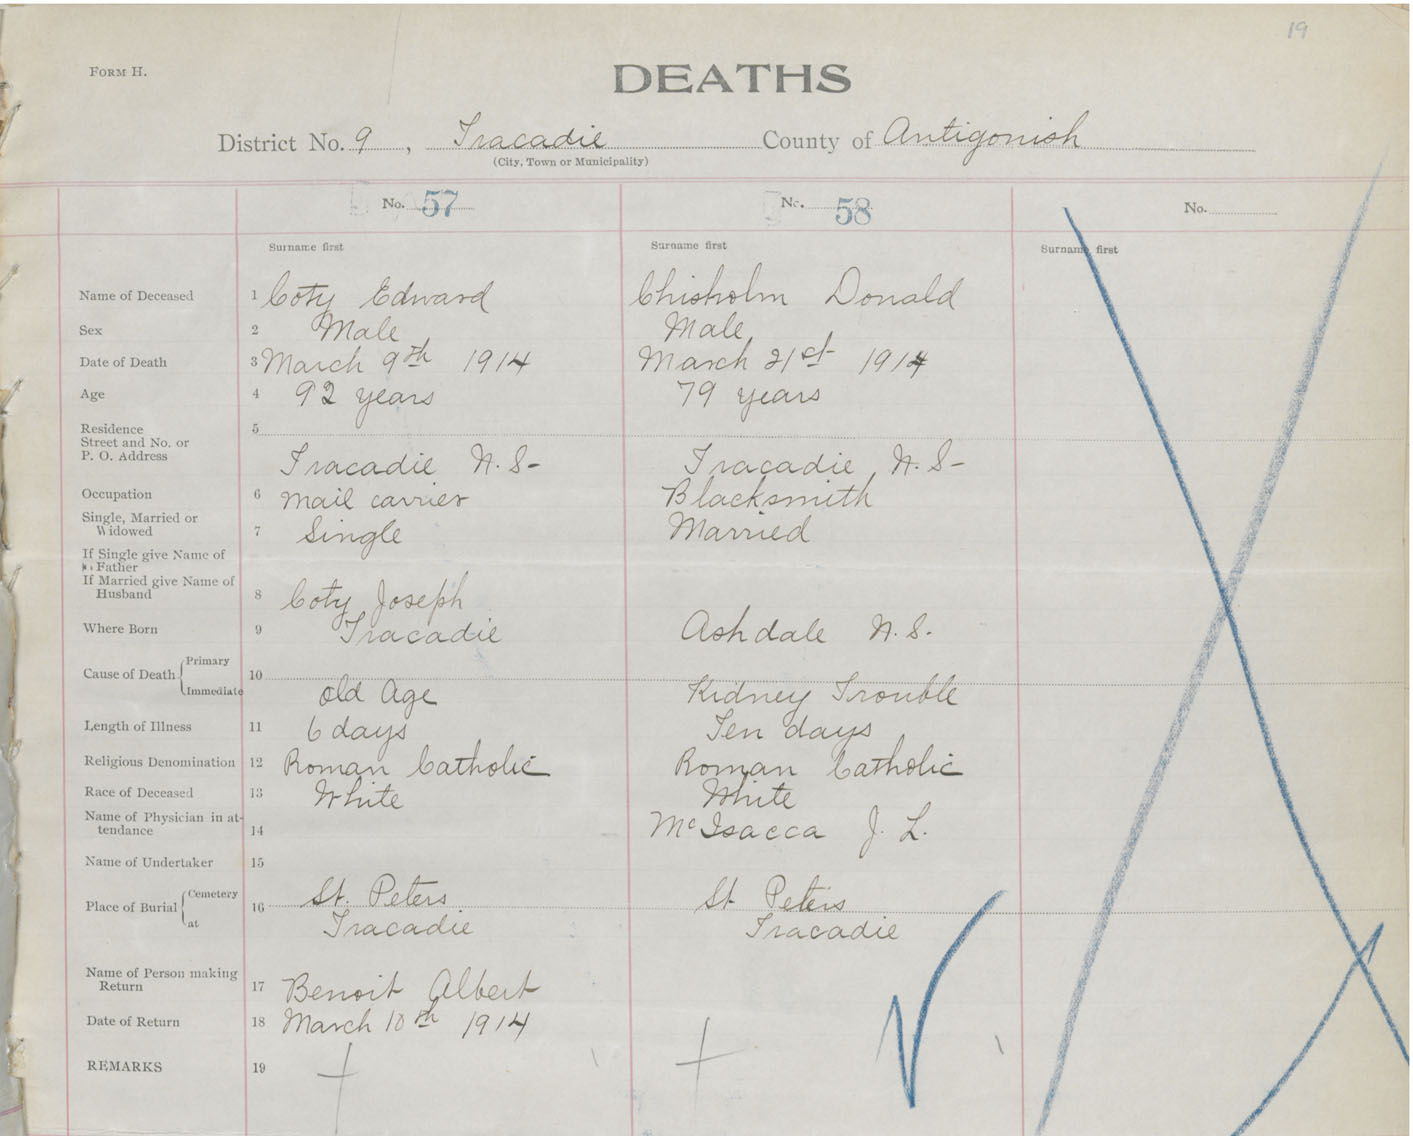 19
FORM H.
DEATHS
District No. 9, Tracadie County of Antigonish
(City, Town or Municipality)
No. 57 No. 58 No.
Surname first Surname first Surname first
Name of Deceased 1 Coty Edward Chisholm Donald
Sex 2 Male Male
Date of Death 3 March 9th 1914 March 21st 1914
Age 4 92 years 79 years
Residence 5
Street and No. or
P. O. Address Tracadie N.S- Tracadie, N.S-
Occupation 6 mail carrier Blacksmith
Single, Married or
Widowed 7 Single Married
If Single give Name of
Father
If Married give Name of
Husband 8 Coty Joseph
Where Born 9 Tracadie Ashdale N.S.
Cause of Death Primary 10
Immediate old Age Kidney Trouble
Length of Illness 11 6 days Ten days
Religious Denomination 12 Roman Catholic Roman Catholic
Race of Deceased 13 White White
Name of Physician in at-
tendance 14 McIsacca J. L.
Name of Undertaker 15
Place of Burial Cemetery 16 St. Peters St Peters
at Tracadie Tracadie
Name of Person making
Return 17 Benoit Albert
Date of Return 18 March 10th 1914
REMARKS 19